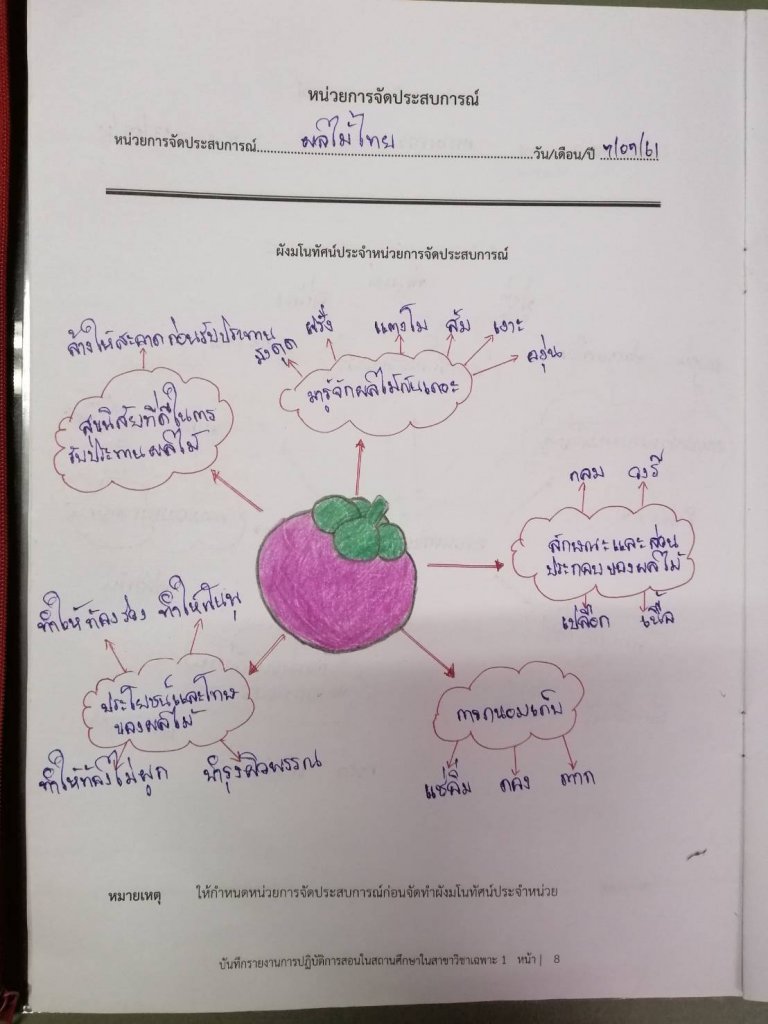 หน่วยการจัดประสบการณ์
หน่วยการจัดประสบการณ์ ผลไม้ไทย วัน/เดือน/ปี
ผังมโนทัศน์ประจำหน่วยการจัดประสบการณ์
ล้างให้สะอาดก่อนรับประทาน
ฝรั่ง แตงโม ส้ม เงาะ องุ่น
มารู้จักผลไม้กันเถอะ
สุขนิสัยที่ดีในการ
รับประทานผลไม้
กลม วงรี
ลักษณะและส่วน
ประกอบของผลไม้
เปลือก เนื้อ
ทำให้ท้องร่วง ทำให้ฟันผุ
ประโยชน์และโทษ
ของผลไม้
ทำให้ท้องไม่ผูก บำรุงผิวพรรณ
การถนอมเก็บ
แช่อิ่ม ดอง ตาก
หมายเหตุ ให้กำหนดหน่วยการจัดประสบการณ์ก่อนจัดทำผังมโนทัศน์ประจำหน่วย
บันทึกรายงานการปฏิบัติการสอนในสถานศึกษาในสาขาวิชาเฉพาะ 1 หน้า | 8